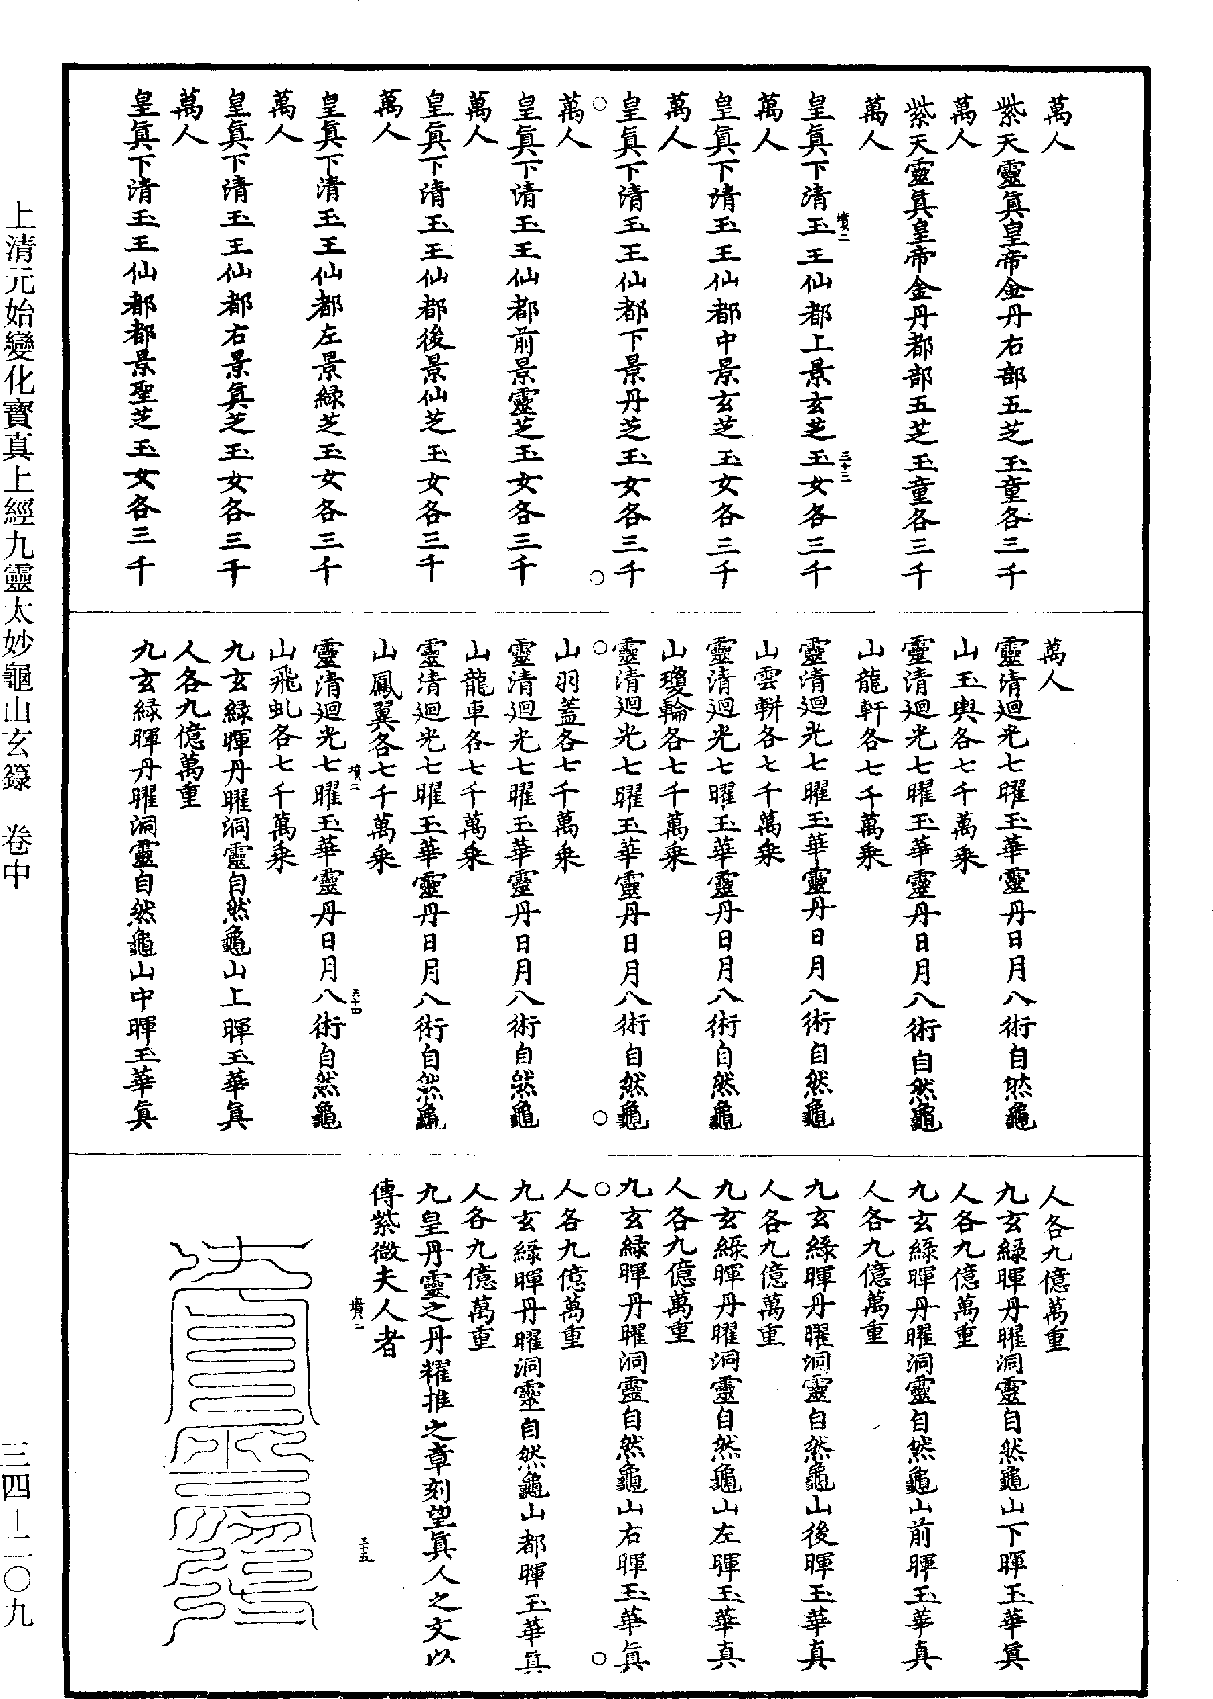 萬人
紫天靈眞皇帝金丹右部五芝玉童各三千
萬人
紫天靈眞皇帝金丹都部五芝玉童各三千
萬人
皇眞下清玉王仙都上景玄芝玉女各三千
萬人
皇眞下清玉王仙都中景玄芝玉女各三千
萬人
皇眞下清玉王仙都下景丹芝玉女各三千
萬人
皇眞下清玉王仙都前景靈芝玉女各三千
萬人
皇眞下清玉王仙都後景仙芝玉女各三千
萬人
皇眞下清玉王仙都左景綠芝玉女各三千
萬人
皇眞下清玉王仙都右景眞芝玉女各三千
萬人
皇眞下清玉王仙都都景聖芝玉女各三千
萬人
靈清迴光七曜玉華靈丹日月八術自然龜
山玉輿各七千萬乘
靈清迴光七曜玉華靈丹日月八術自然龜
山龍軒各七千萬乘
靈清迴光七曜玉華靈丹日月八術自然龜
山雲輧各七千萬乘
靈清迴光七曜玉華靈丹日月八術自然龜
山瓊輪各七千萬乘
靈清迴光七曜玉華靈丹日月八術自然龜
山羽蓋各七千萬乘
靈清迴光七曜玉華靈丹日月八術自然龜
山龍車各七千萬乘
靈清迴光七曜玉華靈丹日月八術自然龜
山鳳翼各七千萬乘
靈清迴光七曜玉華靈丹日月八術自然龜
山飛虬各七千萬乘
九玄綠暉丹曜洞靈自然龜山上暉玉華眞
人各九億萬重
九玄綠暉丹曜洞靈自然龜山中暉玉華眞
人各九億萬重
九玄綠暉丹曜洞靈自然龜山下暉玉華眞
人各九億萬重
九玄綠暉丹曜洞靈自然龜山前暉玉華真
人各九億萬重
九玄綠暉丹曜洞靈自然龜山後暉玉華真
人各九億萬重
九玄綠暉丹曜洞靈自然龜山左暉玉華真
人各九億萬重
九玄綠暉丹曜洞靈自然龜山右暉玉華眞
人各九億萬重
九玄綠暉丹曜洞靈自然龜山都暉玉華眞
人各九億萬重
九皇丹靈之丹耀推之章刻望眞人之文以
傳紫微夫人者
上清元始變化寶真上經九靈太妙龜山玄籙 卷中
三四－二〇九